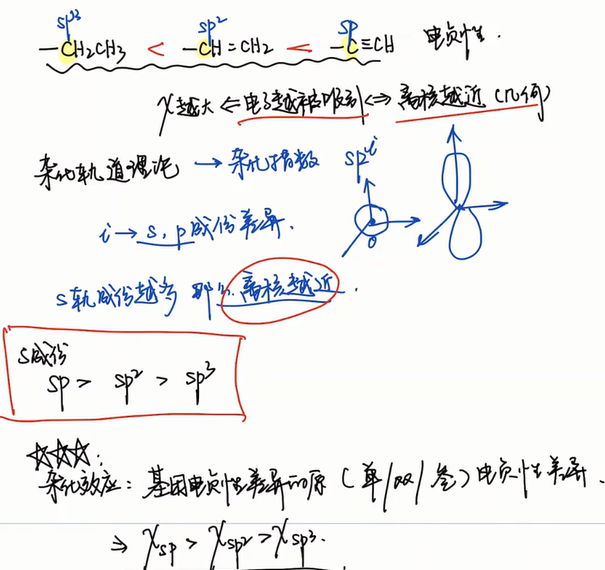 sp³ sp² sp
—CH₂CH₃ < —CH=CH₂ < —C≡CH 电负性.
χ越大 ⇐ 电子越被吸引 ⇔ 离核越近 (几何)
杂化轨道理论 → 杂化指数 spⁱ
i → s, p成份差异.
s轨成份越多 那么离核越近.
s成份
sp > sp² > sp³
☆☆☆:
杂化效应: 基团电负性差异 (单/双/叁) 电负性差异.
⇒ χsp > χsp² > χsp³.